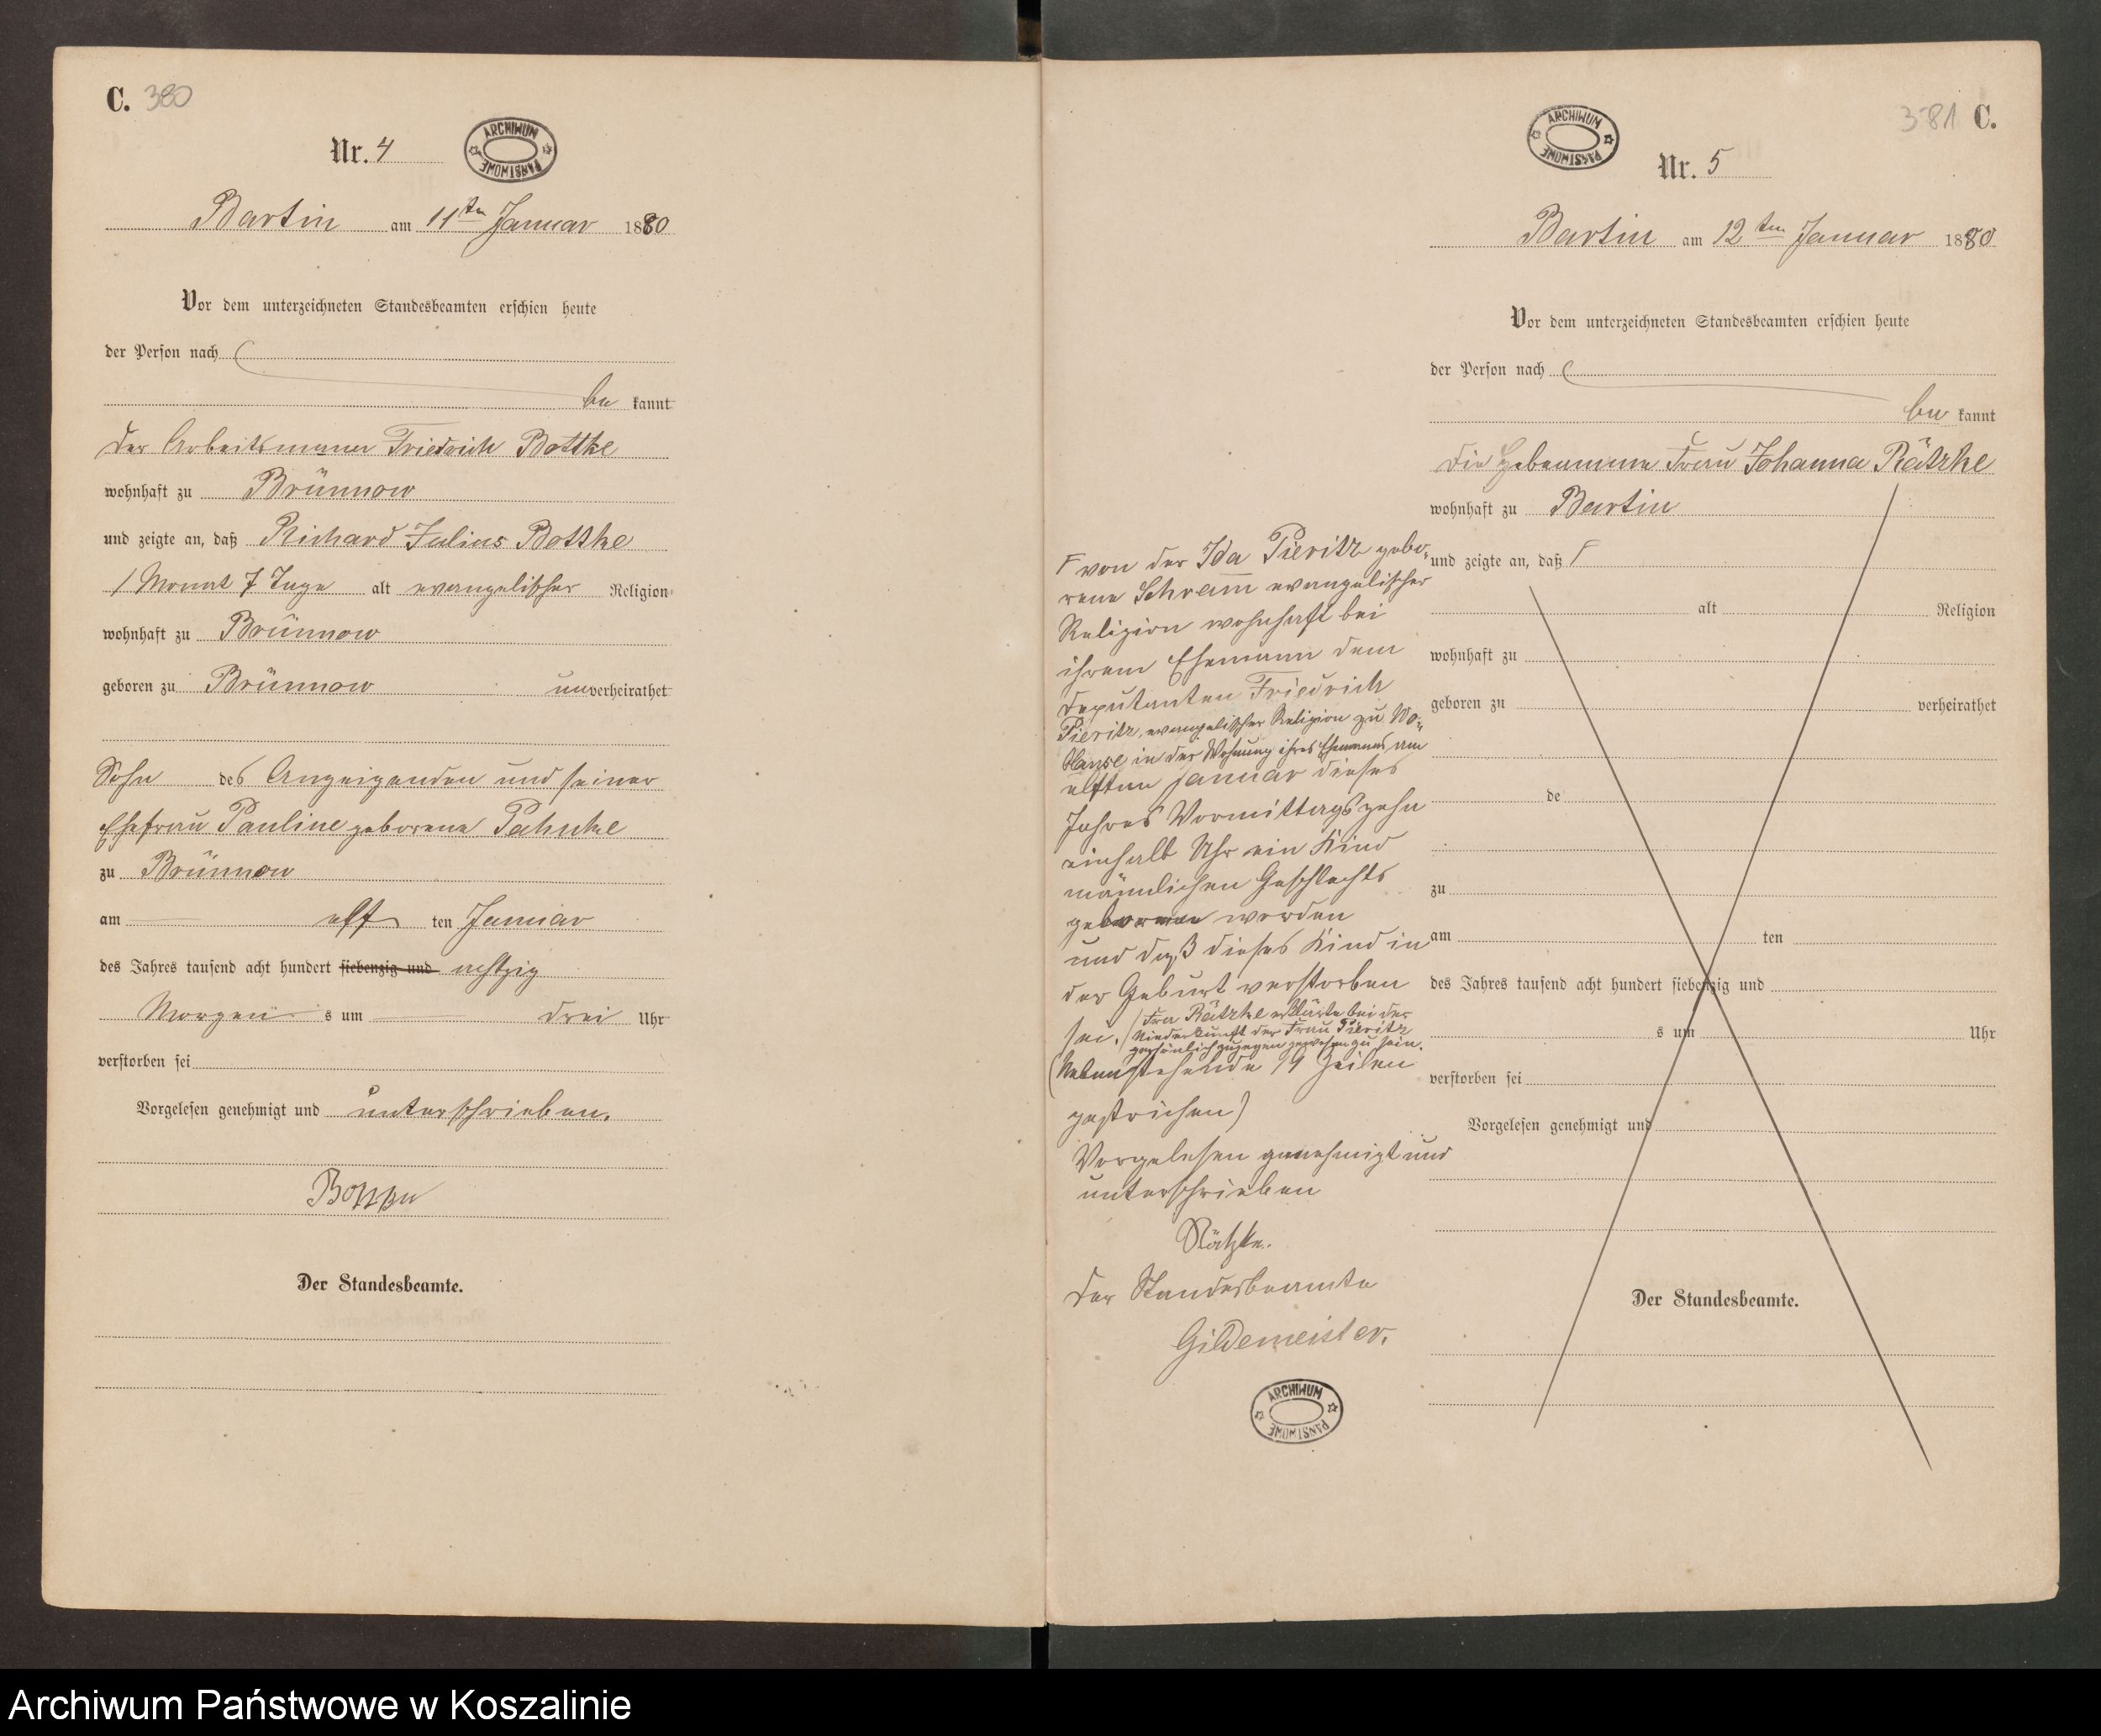 C. 380
Nr. 4
ARCHIWUM PAŃSTWOWE
Bartin am 11ten Januar 1880
Vor dem unterzeichneten Standesbeamten erschien heute
der Person nach
be kannt
der Arbeitsmann Friedrich Bottke
wohnhaft zu Brünnow
und zeigte an, daß Richard Julius Bottke
1 Monat 7 Tage alt evangelischer Religion
wohnhaft zu Brünnow
geboren zu Brünnow unverheirathet
Sohn des Anzeigenden und seiner
Ehefrau Pauline geborene Pahnke
zu Brünnow
am elf ten Januar
des Jahres tausend acht hundert siebenzig und achtzig
Morgen s um drei Uhr
verstorben sei
Vorgelesen genehmigt und unterschrieben.
Der Standesbeamte.
381 C.
ARCHIWUM PAŃSTWOWE
Nr. 5
Bartin am 12ten Januar 1880
Vor dem unterzeichneten Standesbeamten erschien heute
der Person nach
be kannt
die Hebeamme Frau Johanna Rätzke
wohnhaft zu Bartin
und zeigte an, daß F
alt Religion
wohnhaft zu
geboren zu verheirathet
de
zu
am ten
des Jahres tausend acht hundert siebenzig und
s um Uhr
verstorben sei
Vorgelesen genehmigt und
Der Standesbeamte.
F von der Ida Pieritz gebo-
rene Schram̅ evangelischer
Religion wohnhaft bei
ihrem Ehemann dem
Deputanten Friedrich
Pieritz, evangelischer Religion zu Wo-
blanse in der Wohnung ihres Ehemanns, am
elften Januar dieses
Jahres Vormittags zehn
einhalb Uhr ein Kind
männlichen Geschlechts
geboren worden
und daß dieses Kind in
der Geburt verstorben
sei. (Frau Rätzke erklärte bei der
Niederkunft der Frau Pieritz
persönlich zugegen gewesen zu sein.
(Nebenstehende 19 Zeilen
gestrichen)
Vorgelesen genehmigt und
unterschrieben
Rätzke.
Der Standesbeamte
Gildemeister.
ARCHIWUM PAŃSTWOWE
Archiwum Państwowe w Koszalinie